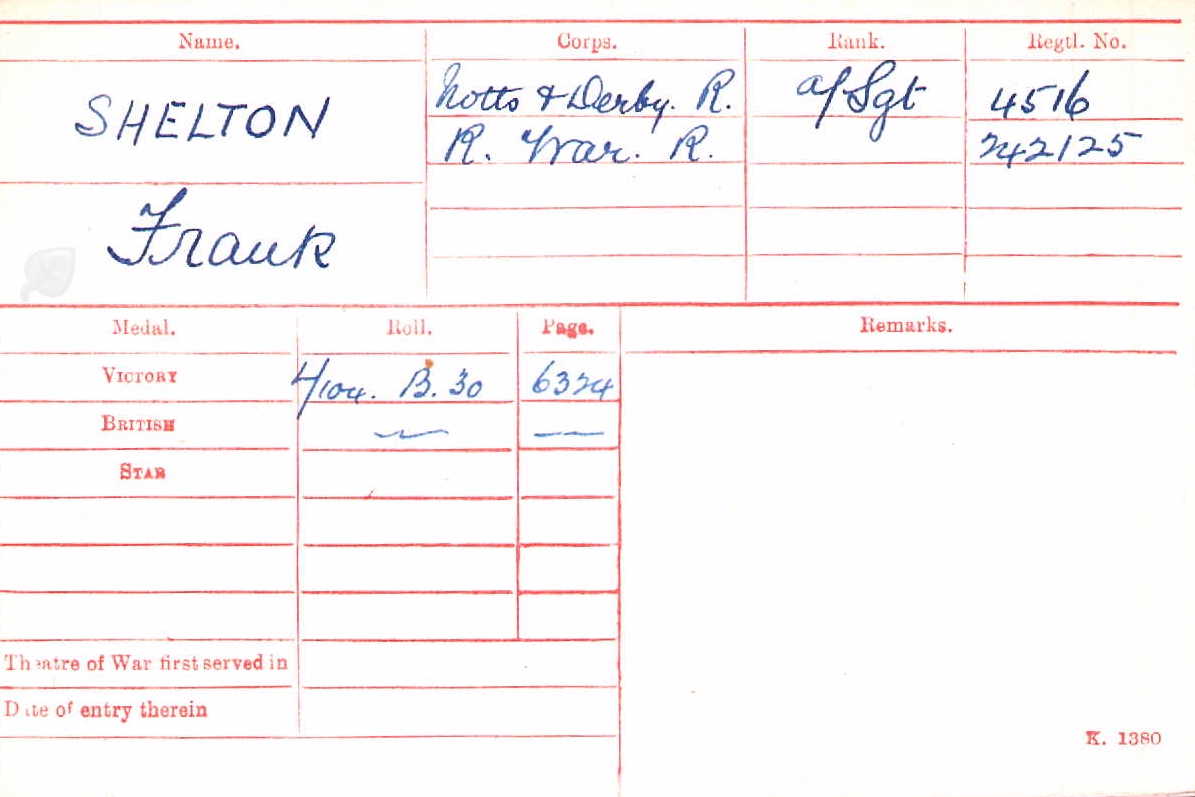 Name. Corps. Rank. Regtl. No.
SHELTON Notts & Derby. R. a/Sgt 4516
R. War. R. 242125
Frank
Medal. Roll. Page. Remarks.
VICTORY 4/104. B. 30 6324
BRITISH
STAR
Theatre of War first served in
Date of entry therein
K. 1380